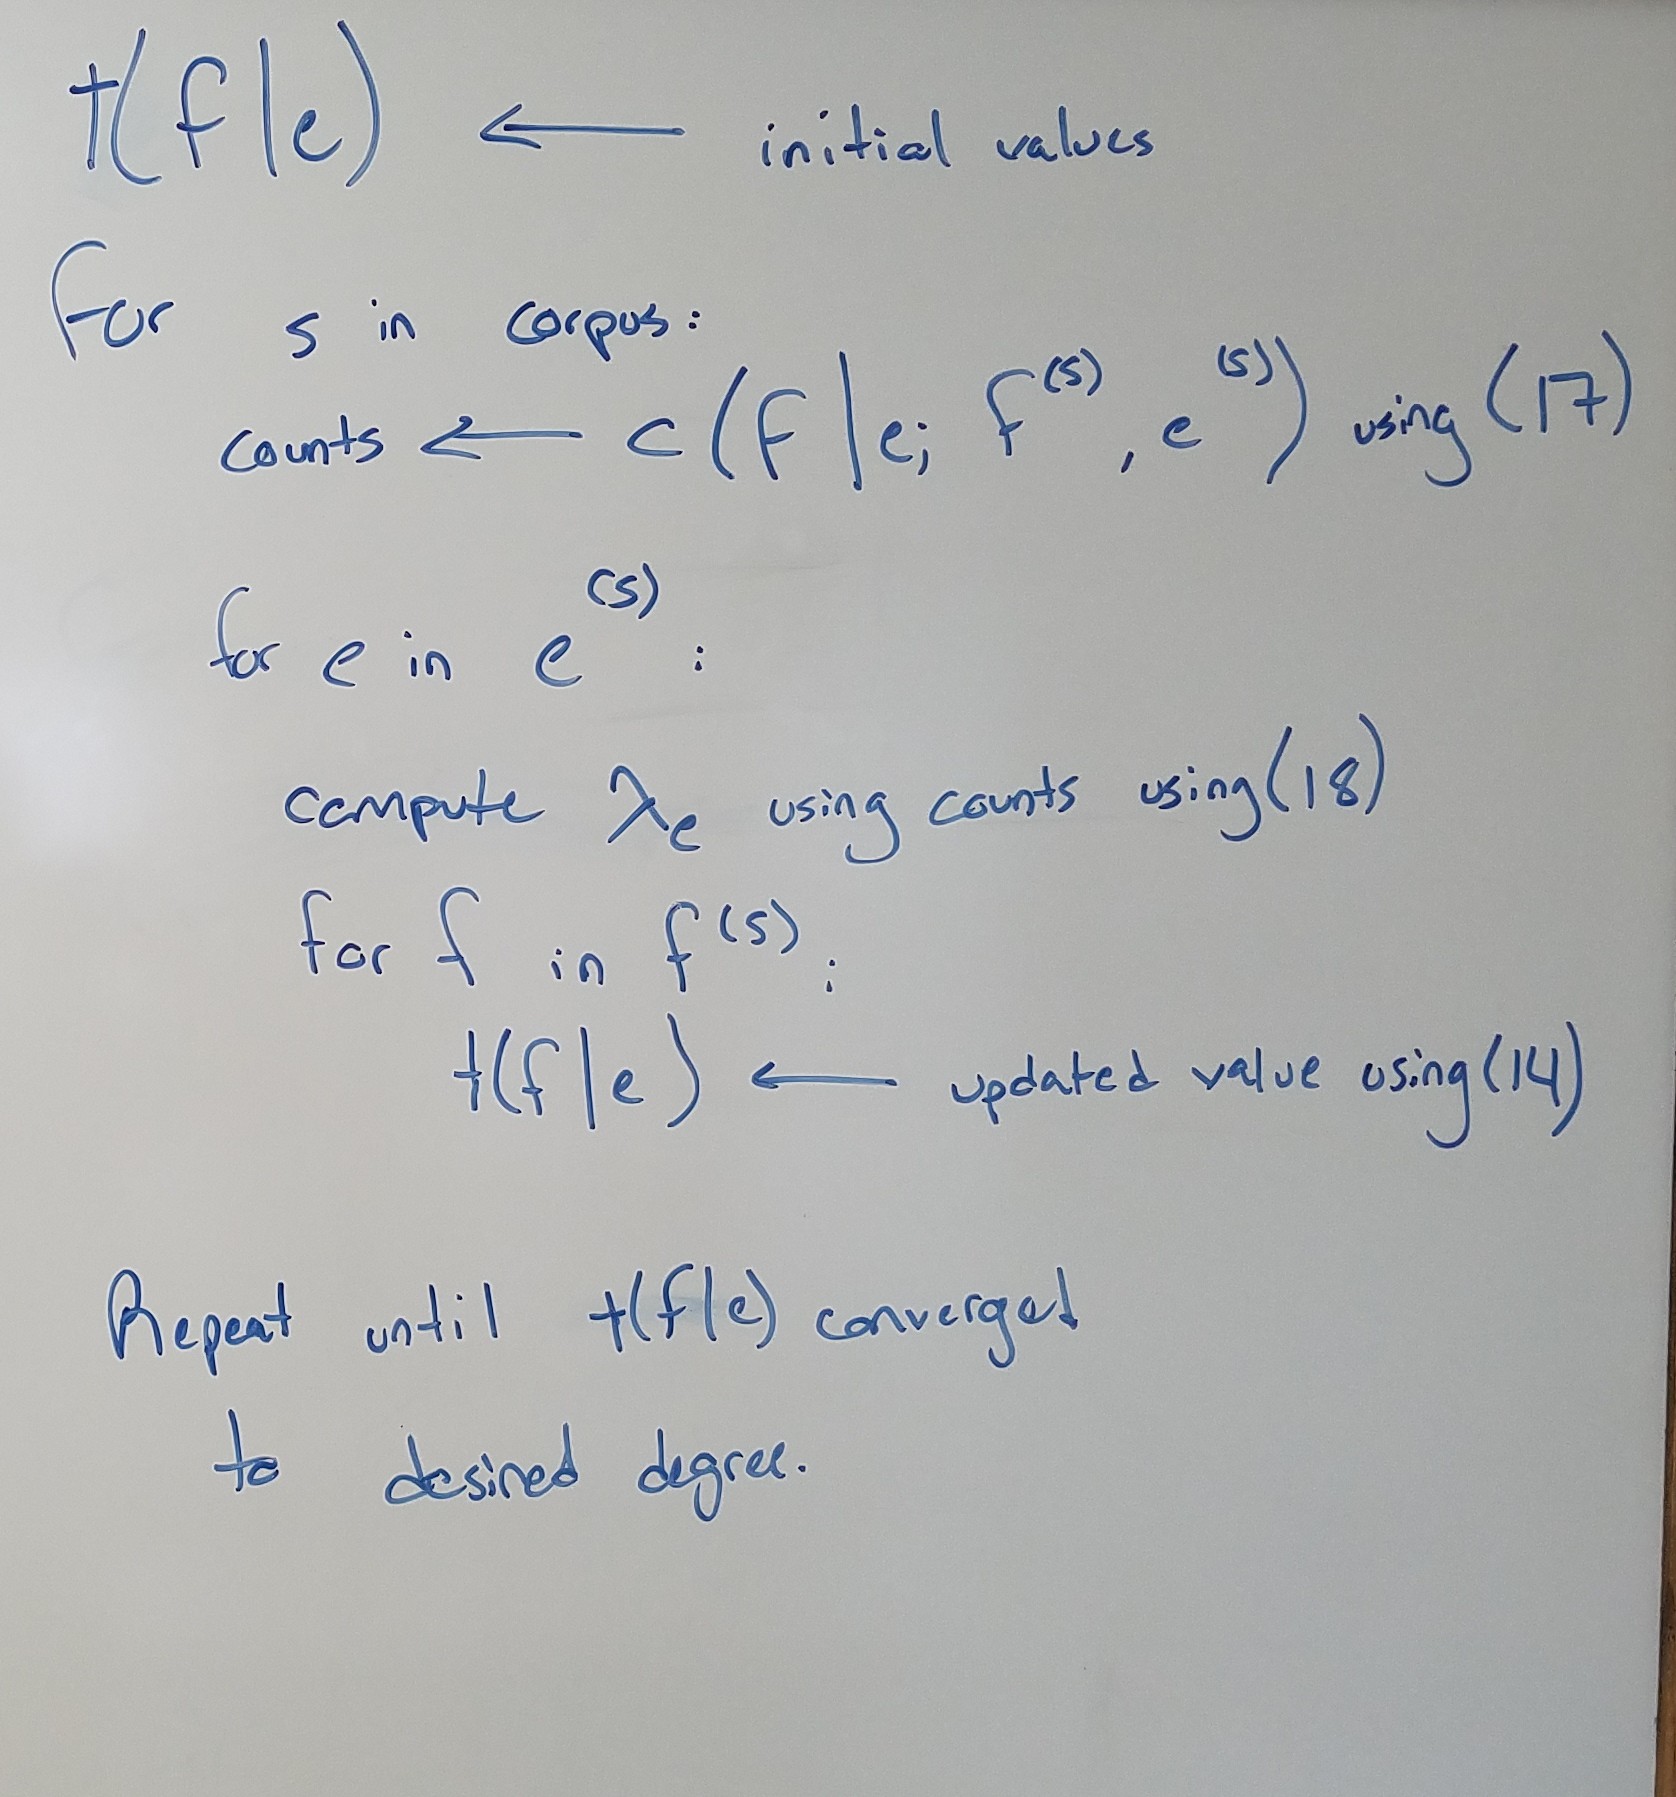 t(f|e) ← initial values
for s in corpus:
counts ← c(f|e; f^(s), e^(s)) using (17)
for e in e^(s):
compute λe using counts using (18)
for f in f^(s):
t(f|e) ← updated value using (14)
Repeat until t(f|e) converged
to desired degree.